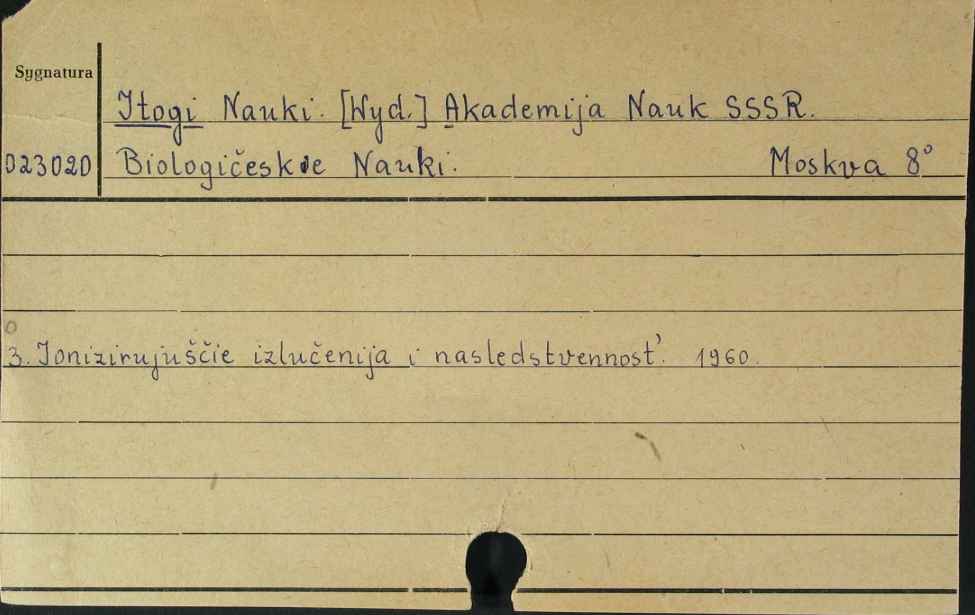 Sygnatura
Itogi Nauki. [Wyd.] Akademija Nauk SSSR.
023020 Biologičeskie Nauki. Moskva 8°
3. Ionizirujuščie izlučenija i nasledstvennost'. 1960.